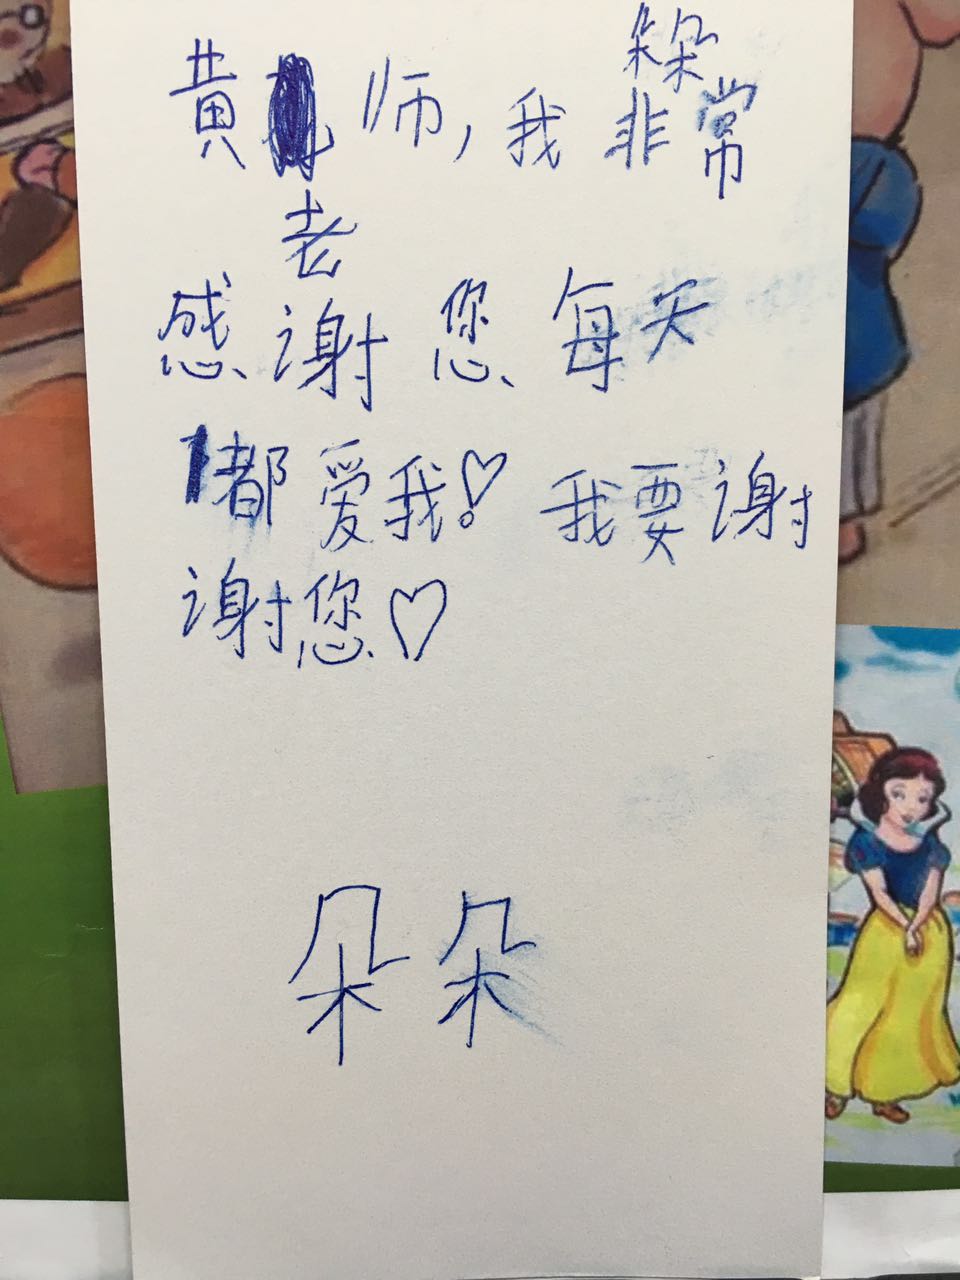 朵朵
黄师，我非常
老
感谢您每天
都爱我！♡我要谢
谢您♡
朵朵